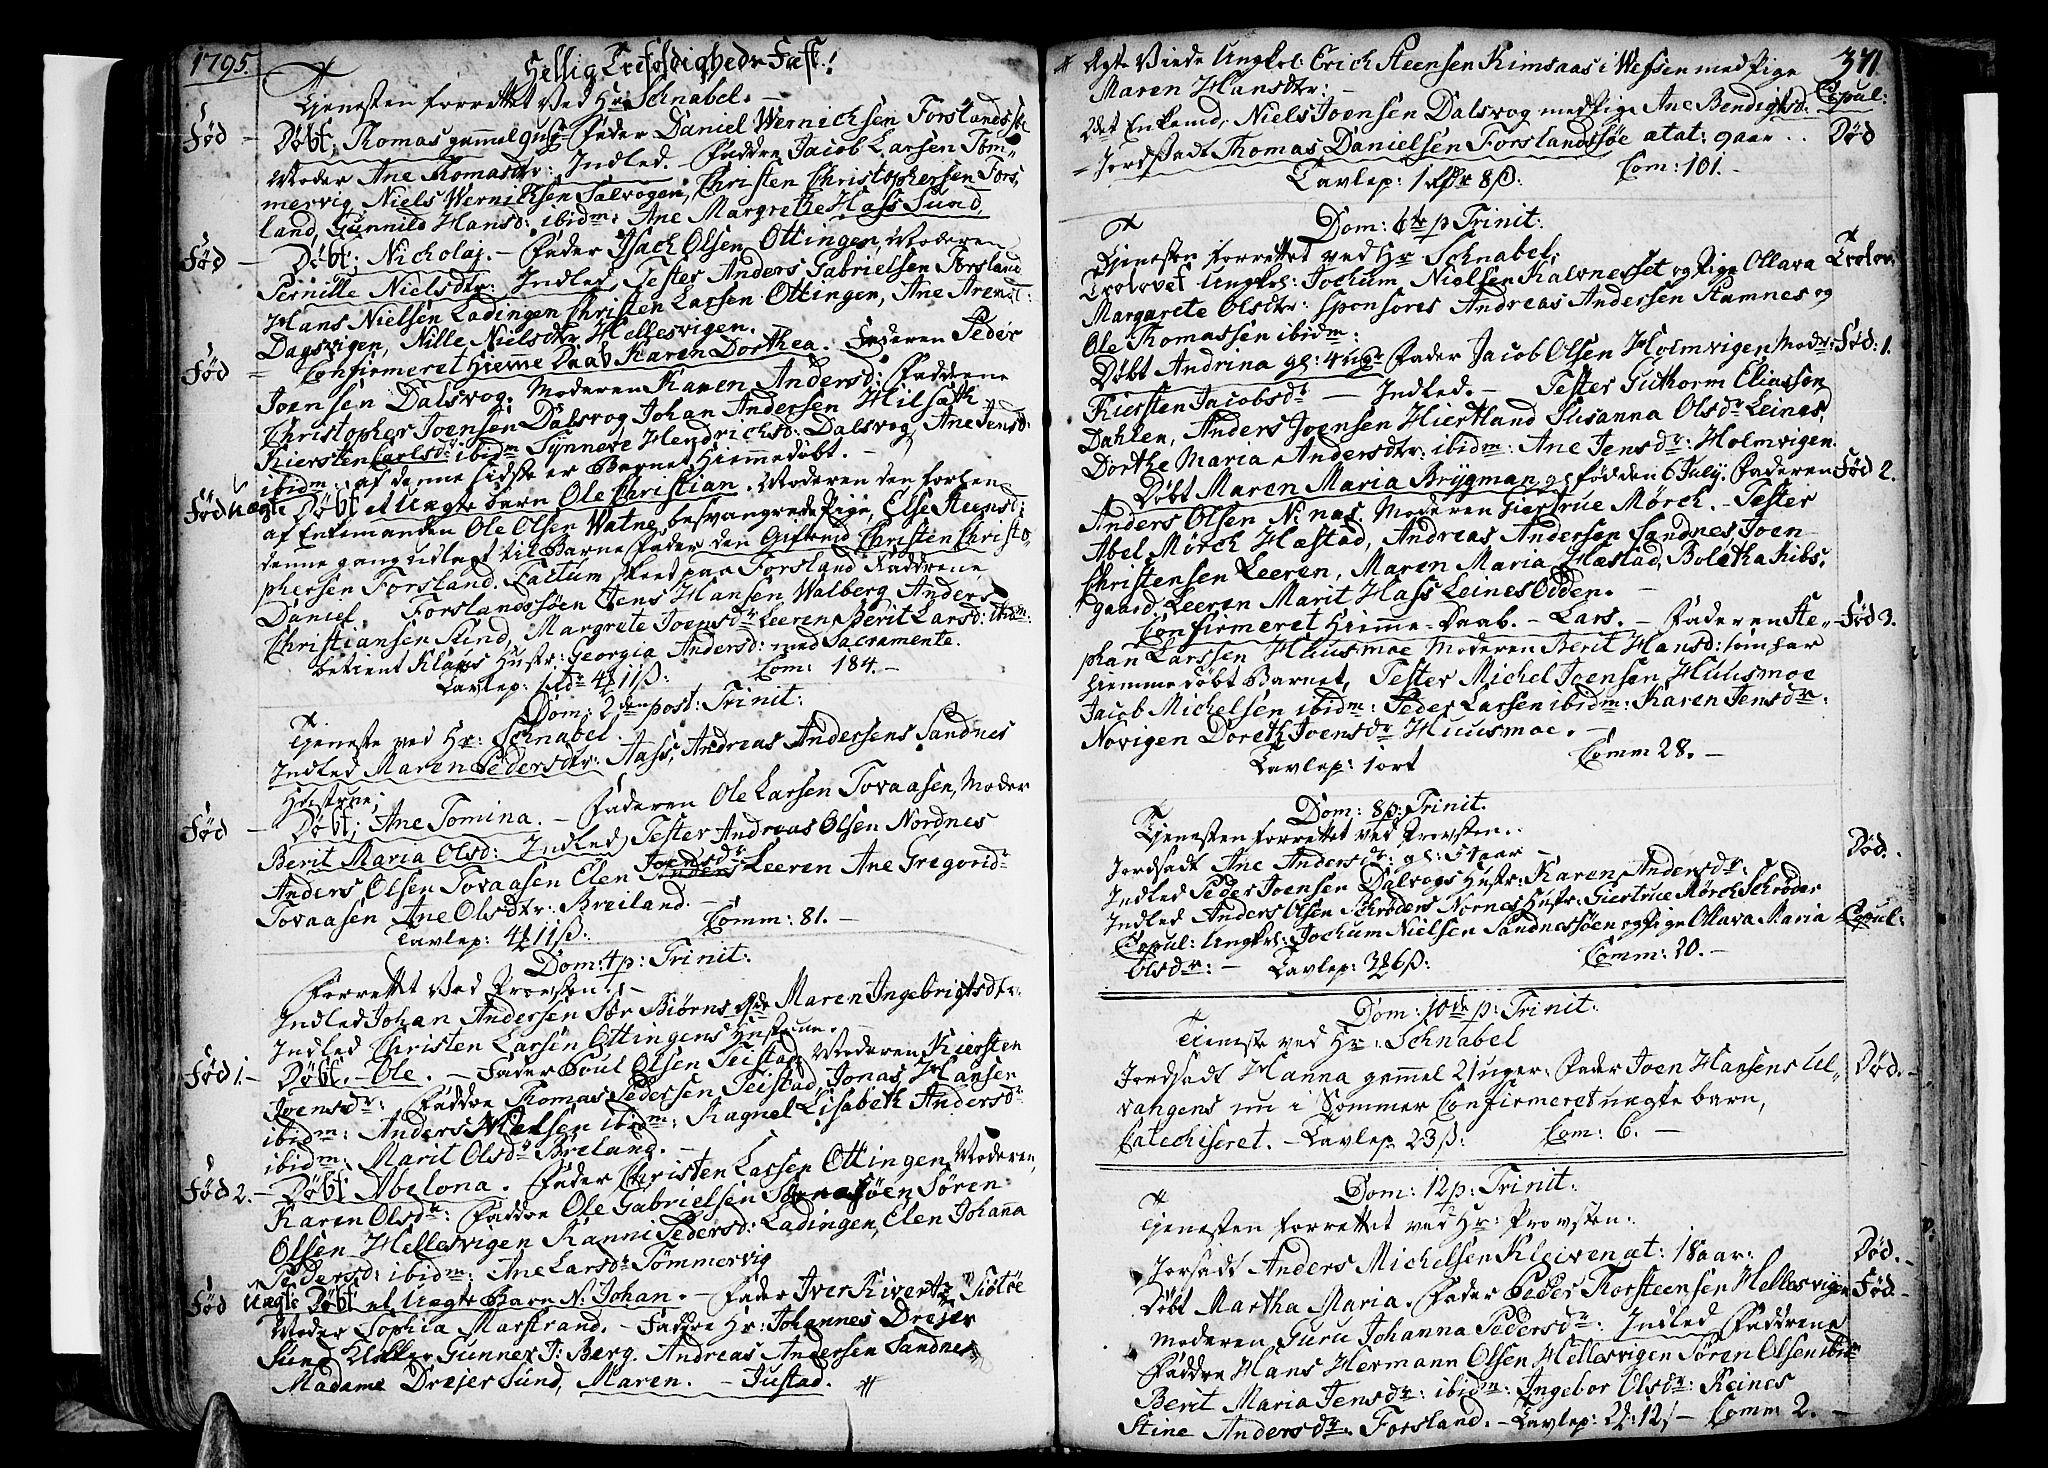 1795.
Hellig Trefoldigheds Fest!
Tjenesten forrettet Ved Hr: Schnabel. -
Fød - Døbt: Thomas gammel 9 ug: Fader Daniel Wernichsen Forslandssøe
Moder Ane Thomasdtr: Indled. - Faddre Jacob Larsen Tøm-
mervig, Niels Wernichsen Salvogen, Christen Christophersen Fors,
land, Gunnild Hansd: ibidm: Ane Margrethe Hass Sund,
Fød - Døbt: Nicholaj. - Fader Isach Olsen Ottingen, Moderen
Pernille Nielsdtr: Indled, Tester Anders Gabrielsen Forsland
Hans Nielsen Ladingen Christen Larsen Ottingen, Ane Arentd:
Dagsvigen, Nille Nielsdtr Hellesvigen.
Fød - Confirmeret Hiemme Daab Karen Dorthea. Faderen Peder
Joensen Dalsvog. Moderen Karen Andersd: Faddrene
Christopher Joensen Dalsvog Johan Andersen Hilsath
Kiersten Carlsdr ibidm Synneve Hendrichsd: Dalsvog, Ane Jensd:
ibidm: af denne sidste er Barnet Hiemmedøbt. -
Fød uægte Døbt et Uægte barn Ole Christian. Moderen den forhen
af Enkemanden Ole Olsen Watne besvangrede Pige, Else Steensd:
denne gang udlagt til Barnefader den Gifte Christen Christo-
phersen Forsland. Factum skeet paa Forsland Faddrene
Daniel Forslandssøen Jens Hansen Walberg Anders
Christiansen Sund, Margrete Joensdr Leeren Berit Larsd: ibidm:
betient Klaus Hustr: Georgia Andersd: med Sacramente.
Tavlep: 4 11 ß: Com: 184. -
Dom: 2den post: Trinit:
Tjeneste ved Hr: Schnabel.
Indled Maren Pedersdtr: Aass, Andreas Andersens Sandnes
Hustrue;
Fød - Døbt; Ane Tomina. - Faderen Ole Larsen Tovaasen, Moder
Berit Maria Olsd: Indled, Tester Andreas Olsen Nordnes
Anders Olsen Tovaasen Elen Joensdr Leeren Ane Gregorid:
Tovaasen Ane Olsdtr: Breiland. -
Tavlep: 4 11 ß: Comm: 81. -
Dom: 4 p: Trinit:
Forrettet Ved Provsten. -
Indled Johan Andersen Sør Biørns Maren Ingebrigtsdtr:
Indled Christen Larsen Ottingens Hustrue. -
Fød 1. - Døbt. - Ole. - Fader Poul Olsen Teistad, Moderen Kiersten
Joensdr: Faddre Thomas Pedersen Teistad, Jonas Hansen
ibidm: Anders Nielsen ibidm: Ragnel Lisabeth Andersdr
ibidm: Marit Olsdr Breland. -
Fød 2. - Døbt Abelona. Fader Christen Larsen Ottingen, Moderen,
Karen Olsdr: Faddre Ole Gabrielsen Søren
Olsen Hellesvigen Kanni Pedersd: Ladingen, Elen Johanna
Pedersd: ibidm: Ane Larsdr Tømmervig
Fød Uægte Døbt et Uægte Barn N: Johan. - Fader Iver Sivertz Tiøtøe
Moder Sophia Marstrand. - Faddre Hr: Johannes Drejer
Sund Klokker Gunner J: Berg. Andreas Andersen Sandnes
Madame Drejer Sund, Maren. - Justad.
371
Ægte Viede Ungkl: Erich Steensen Kimsaas i Wefsen med Pige
Maren Hansdtr: -
2det Enkemd, Niels Joensen Dalsvog med Pige Ane Bendigtsd: Copul:
- Jordfæstt Thomas Danielsen Forslandssøe ætat: 9 aar . . Død
Tavlep: 1 8 ß: Com: 101. -
Dom: 6te p Trinit:
Tjenesten forrettet ved Hr Schnabel,
Trolovet Ungkl: Jochum Nielsen Kalvnesset og Pige Ollava Trolov:
Margarete Olsdtr: Sponsores Andreas Andersen Stamnes og
Ole Thomassen ibidm:
Døbt Andrina gl: 4 ugr Fader Jacob Olsen Holmvigen Modr: Fød: 1.
Kiersten Jacobsdr - Indled. - Tester Guthorm Eliassøn
Dahlen, Anders Joensen Hiertland Susanna Olsdr Leines,
Dorthe Maria Andersdtr: ibidm: Ane Jensdr: Holmvigen.
Døbt Maren Maria Brygman g: fød den 6 July. Faderen Fød 2.
Anders Olsen N: nas. Moderen Giertrue Mørch. - Tester
Abel Mørch Hæstad, Andreas Andersen Sandnes, Joen
Christensen Leeren, Maren Maria Hæstad, Boletha Ribs,
gaard, Leeren Marit Hass Leines Odden. -
Confirmeret Hiemme-Daab. - Lars. - Faderen Ste- - Fød 3.
phan Larssen Huusmoe Moderen Berit Hansd: som har
hiemme døbt Barnet, Tester Michel Joensen Huusmoe
Jacob Michelsen ibidm: Peder Larsen ibidm: Karen Jensdr:
Novigen Doreth Joensdr Huusmoe. -
Tavlep: 1 ort Comm 28. -
Dom: 8 p: Trinit.
Tjenesten forrettet ved Provsten..
Jordfæstt Ane Andersdr: gl: 51 aar - Død.
Indled Peder Joensen Dalvogs Hustr: Karen Andersdr:
Indled Anders Olsen Schrøders Nornes Hustr: Giertrue Mørch Schrøder
Copul: Ungkl: Jochum Nielsen Sandnessøen og Pige Ollava Maria Copul:
Olsdr: - Tavlep: 3 6 ß: Comm: 20. -
Dom: 10de p: Trinit:
Tieneste ved Hr: Schnabel
Jordfæstt Hanna gammel 21 uger: Fader Joen Hansens Ul- Død. -
vangens nu i Sommer Confirmeret uægte barn,
Catechiseret. - Tavlep 23 ß: Com: 6. -
Dom: 12 p: Trinit:
Tjenesten forrettet ved Hr: Provsten:
Jorfæstt Anders Michelsen Kleiven æt: 18 aar: Død. -
Døbt Martha Maria. Fader Peder Thorsteensen Hellesvigen Fød -
Moderen Guru Johanna Pedersdr: Indled Faddrene
Faddre Hans Hermann Olsen Hellesvigen Søren Olsen ibm
Berit Maria Jensdr: ibidm: Ingebor Olsdr: Reines
Stine Andersdr: Forsland. - Tavlep: 2 12 - Comm 2. -